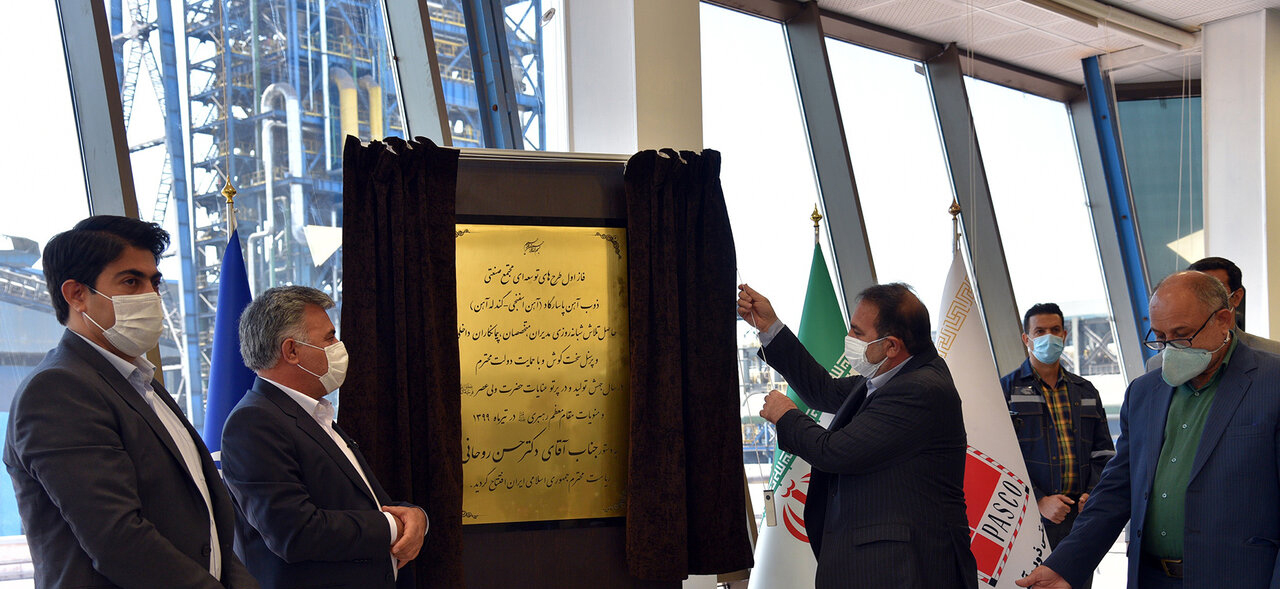 فاز اول طرح های توسعه ای مجتمع صنعتی
ذوب آهن پاسارگاد (آهن اسفنجی-کنداله آهن)
حاصل تلاش شبانه روزی مدیران، متخصصان، پیمانکاران داخلی
و پرسنل سخت کوش و با حمایت دولت محترم
در سال جهش تولید و در پرتو عنایات حضرت ولی عصر
و منویات مقام معظم رهبری در تیرماه ۱۳۹۹
به دستور جناب آقای دکتر حسن روحانی
ریاست محترم جمهوری اسلامی ایران افتتاح گردید.
PASCO